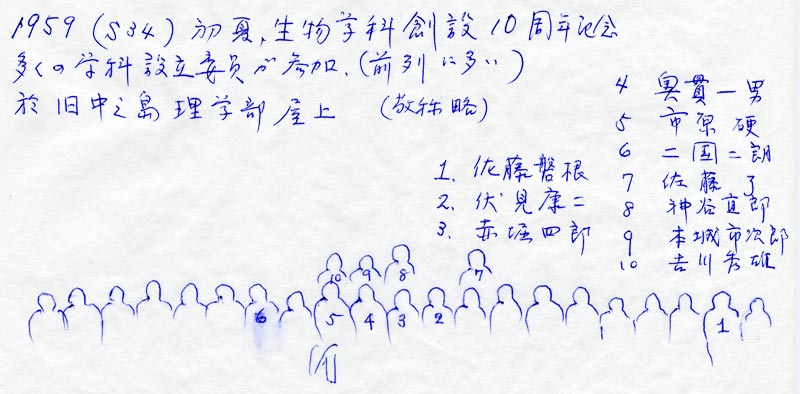 1959 (S34) 初夏, 生物学科創設10周年記念
多くの学科設立委員が参加. (前列に多い)
於旧中之島理学部屋上 (敬称略)
1. 佐藤磐根
2. 伏見康二
3. 赤堀四郎
4 奥貫一男
5 市原硬
6 二国二朗
7 佐藤了
8 神谷宣郎
9 本城市次郎
10 吉川秀雄
10 9 8 7
6 5 4 3 2 1